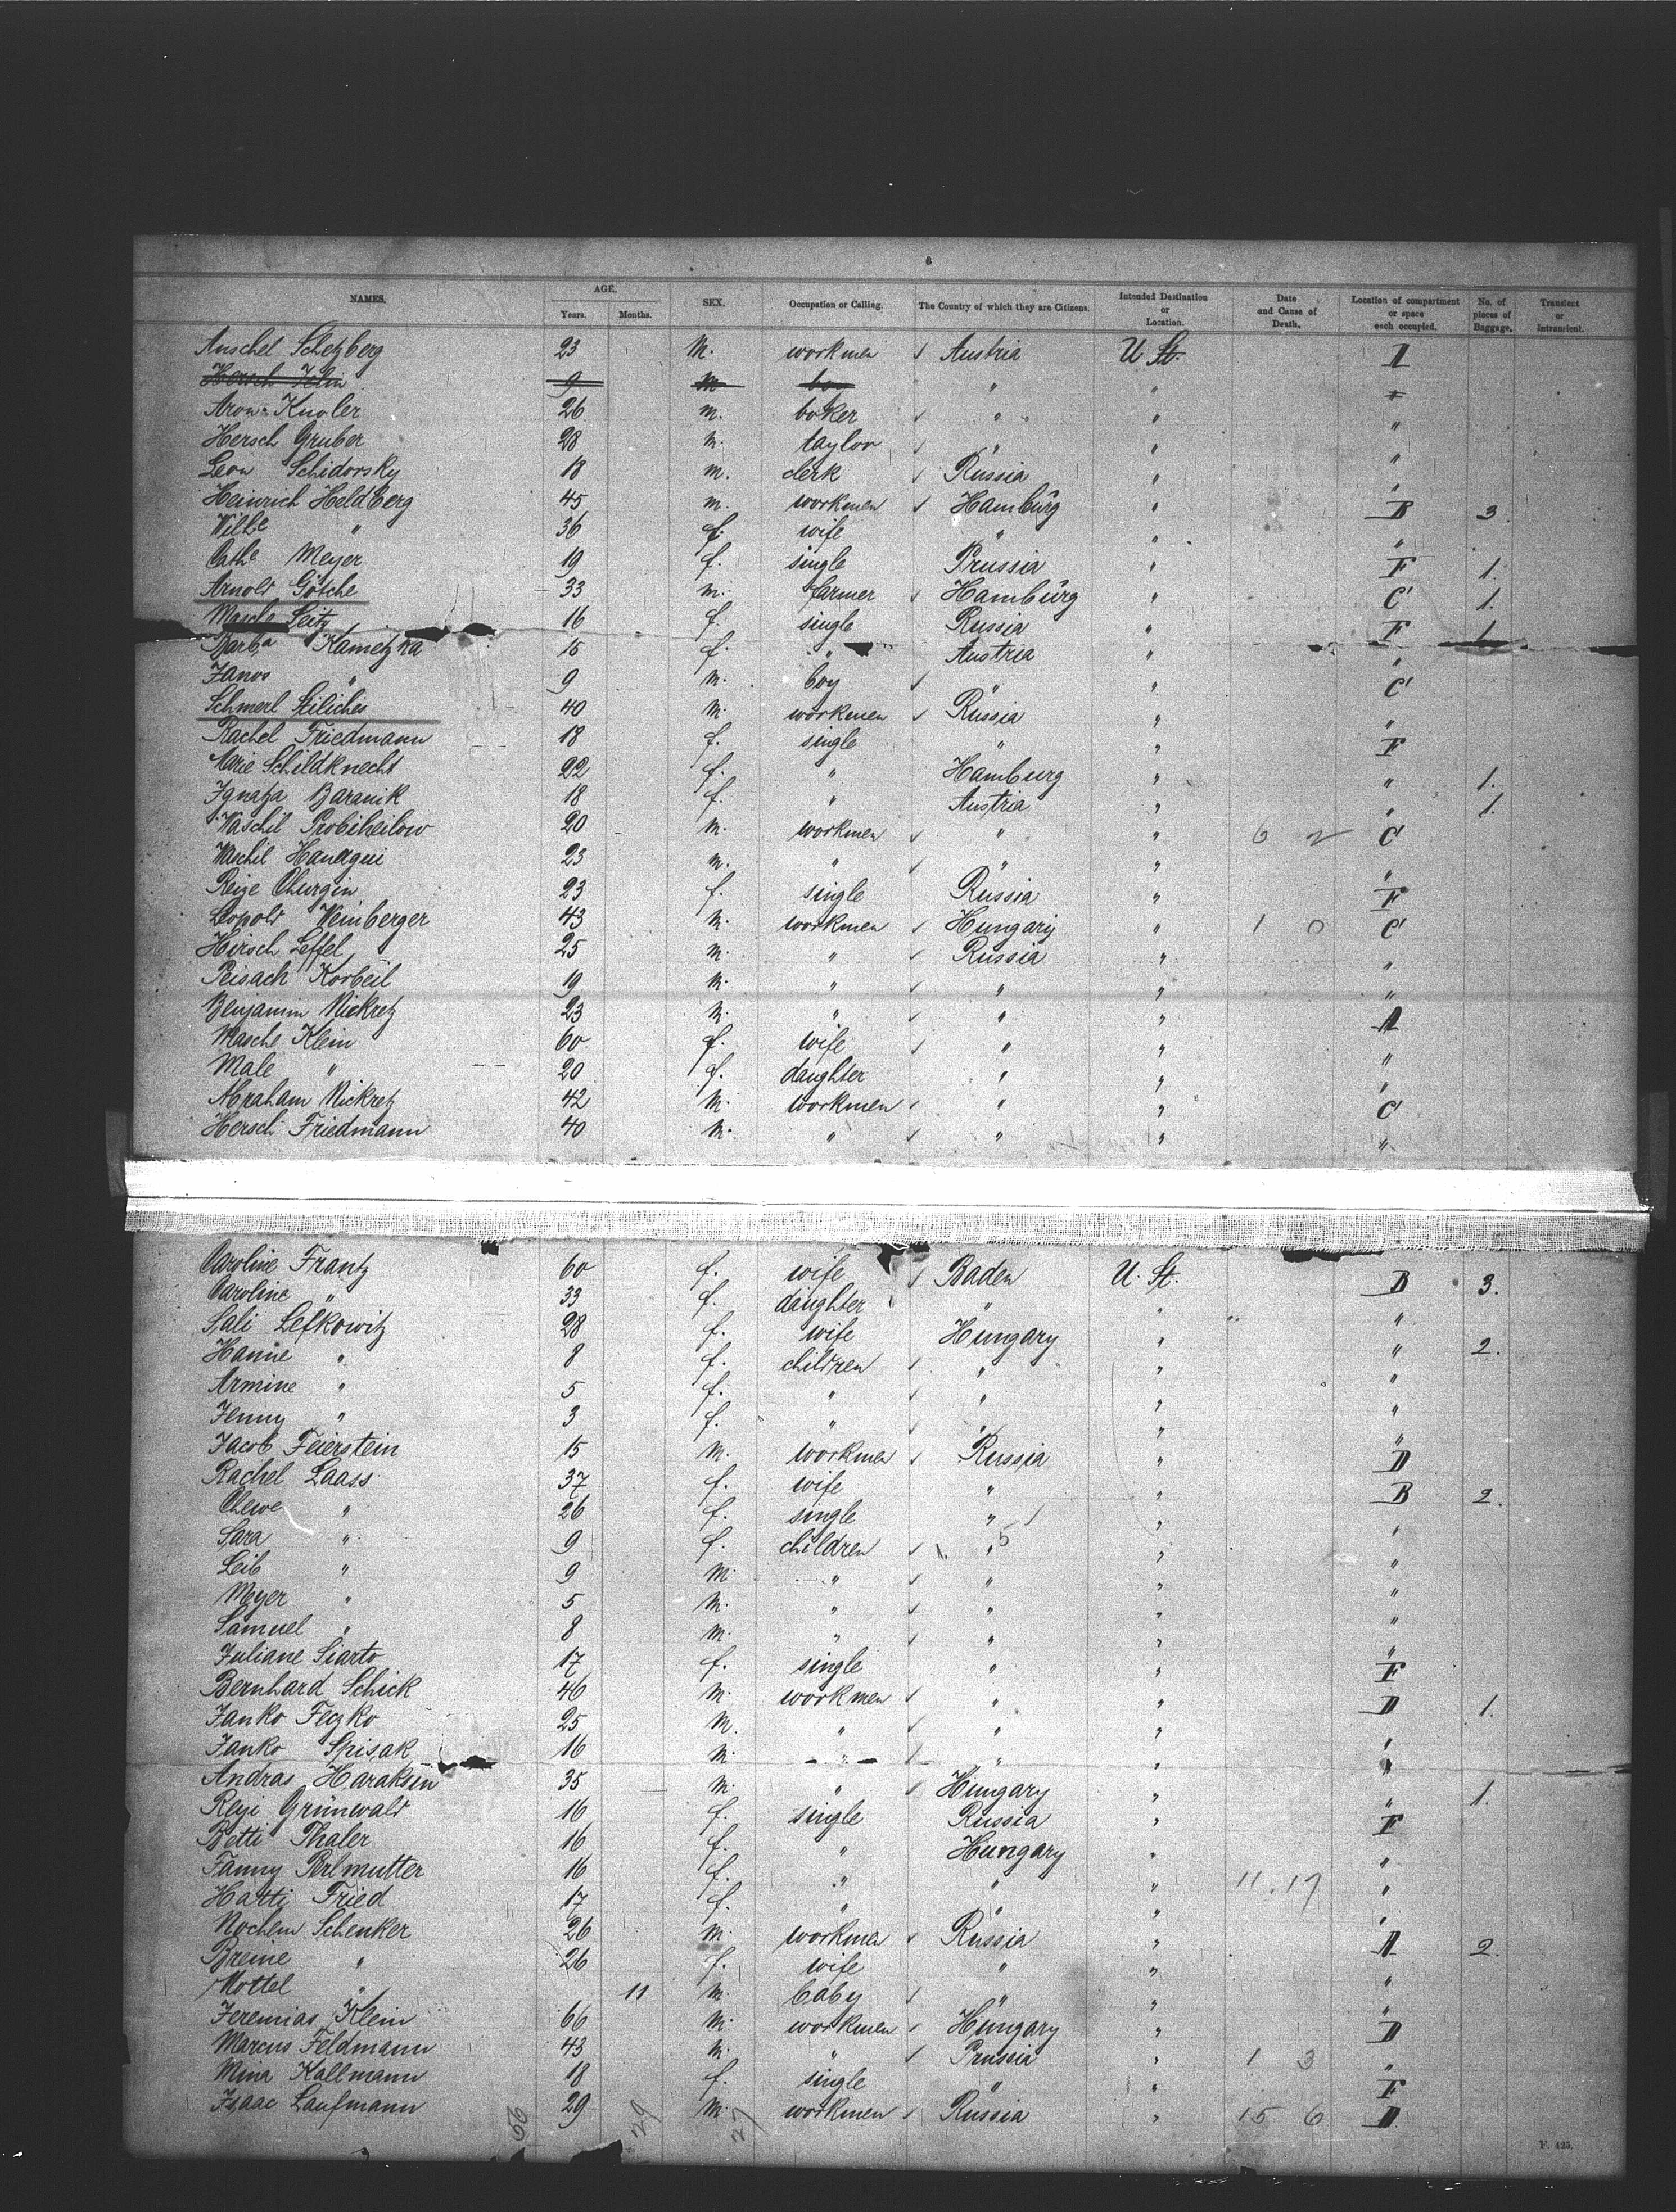 6
NAMES. AGE. Years. Months. SEX. Occupation or Calling. The Country of which they are Citizens. Intended Destination or Location. Date and Cause of Death. Location of compartment or space each occupied. No. of pieces of Baggage. Transient or Intransient.
Anschel Schetzberg 23 M. workmen Austria U. St.
Hersch 9 M boy " "
Aron Knoler 26 m. boker " " "
Hersch Gruber 28 m. taylor " " "
Leon Schidorsky 18 m. clerk Russia " "
Heinrich Heldberg 45 m. workmen Hamburg " B 3
Wilh.e " 36 f. wife " " "
Cath.e Meyer 19 f. single Prussia " F 1.
Arnold Götche 33 m. farmer Hamburg " C 1.
Masche Seitz 16 f. single Russia " F 1.
Barb.a Kametzka 15 f. " Austria " "
Janos " 9 m. boy " " C
Schmerl 40 M. workmen Russia " "
Rachel Friedmann 18 f. single " " F
Marie Schildknecht 22 f. " Hamburg " " 1.
Ignatza Baranik 18 f. " Austria " " 1.
Waschil 20 M. workmen " " 6 2 C
Waschil 23 m. " " " "
Reize Churgin 23 f. single Russia " F
Leopold Weinberger 43 M. workmen Hungary " 1 0 C
Hirsch Leffel 25 m. " Russia " "
Peisach Korbeil 19 M. " " " "
Benjamin Nickretz 23 M. " " " A
Masche Klein 60 f. wife " " "
Male " 20 f. daughter " " "
Abraham Nickretz 42 M. workmen " " C
Hersch Friedmann 40 M. " " " "
Caroline Frantz 60 f. wife Baden U. St. B 3.
Caroline " 33 f. daughter " " "
Sali Lefkowitz 28 f. wife Hungary " " 2.
Hanie " 8 f. children " " "
Armine " 5 f. " " " "
Jenny " 3 f. " " " "
Jacob Feierstein 15 M. workmen Russia " D
Rachel Laass 37 f. wife " " B 2.
Chewe " 26 f. single " " "
Sara " 9 f. children " 5 " "
Leib " 9 M. " " " "
Meyer " 5 M. " " " "
Samuel " 8 M. " " " "
Juliane Siarto 17 f. single " " F
Bernhard Schick 46 M. workmen " " D 1.
Janko Feczko 25 M. " " " "
Janko Spisak 16 M. " " " "
Andras Haraksin 35 M. " Hungary " " 1.
Reyi Grünwald 16 f. single Russia " F
Betti Thaler 16 f. " Hungary " "
Fanny Perlmutter 16 f. " " " 11.17 "
Hatti Fried 17 f. " " " "
Nochem Schenker 26 M. workmen Russia " A 2.
Breine " 26 f. wife " " "
Mottel " 11 M. baby " " "
Jeremias Klein 66 M. workmen Hungary " D
Marcus Feldmann 43 M. " Prussia " 1 3 "
Mina Kallmann 18 f. single " " F
Isaac Laufmann 29 M. workmen Russia " 15 6 D.
56 29 27
F. 425.